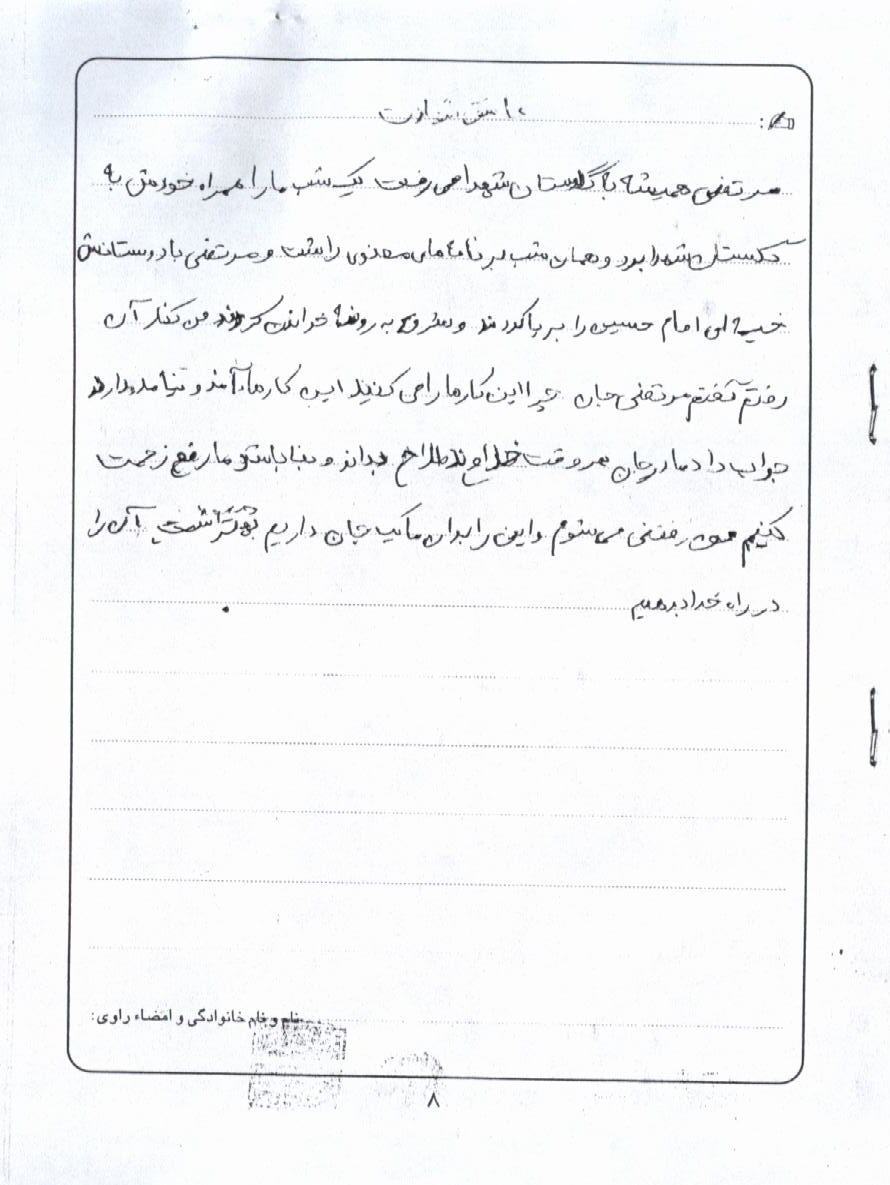 عشق شهادت
مرتضی همیشه با گلستان شهدا می رفت یک شب ما را همراه خودش به
گلستان شهدا برد و همان شب برنامه های معنوی داشت و مرتضی با دوستانش
خیمه ای امام حسین را بر پا کردند و شروع به روضه خواندن کردند من کنار آن
رفتم گفتم مرتضی جان چرا این کارها را می کنید این کارها آمد و نیامد دارد
جواب داد مادر جان هر وقت خداوند صلاح بداند و بنا باشد ما رفع زحمت
کنیم من رفتنی می شوم و این را بدان ما یک جان داریم بهتر است آن را
در راه خدا بدهیم
نام و نام خانوادگی و امضاء راوی:
۸